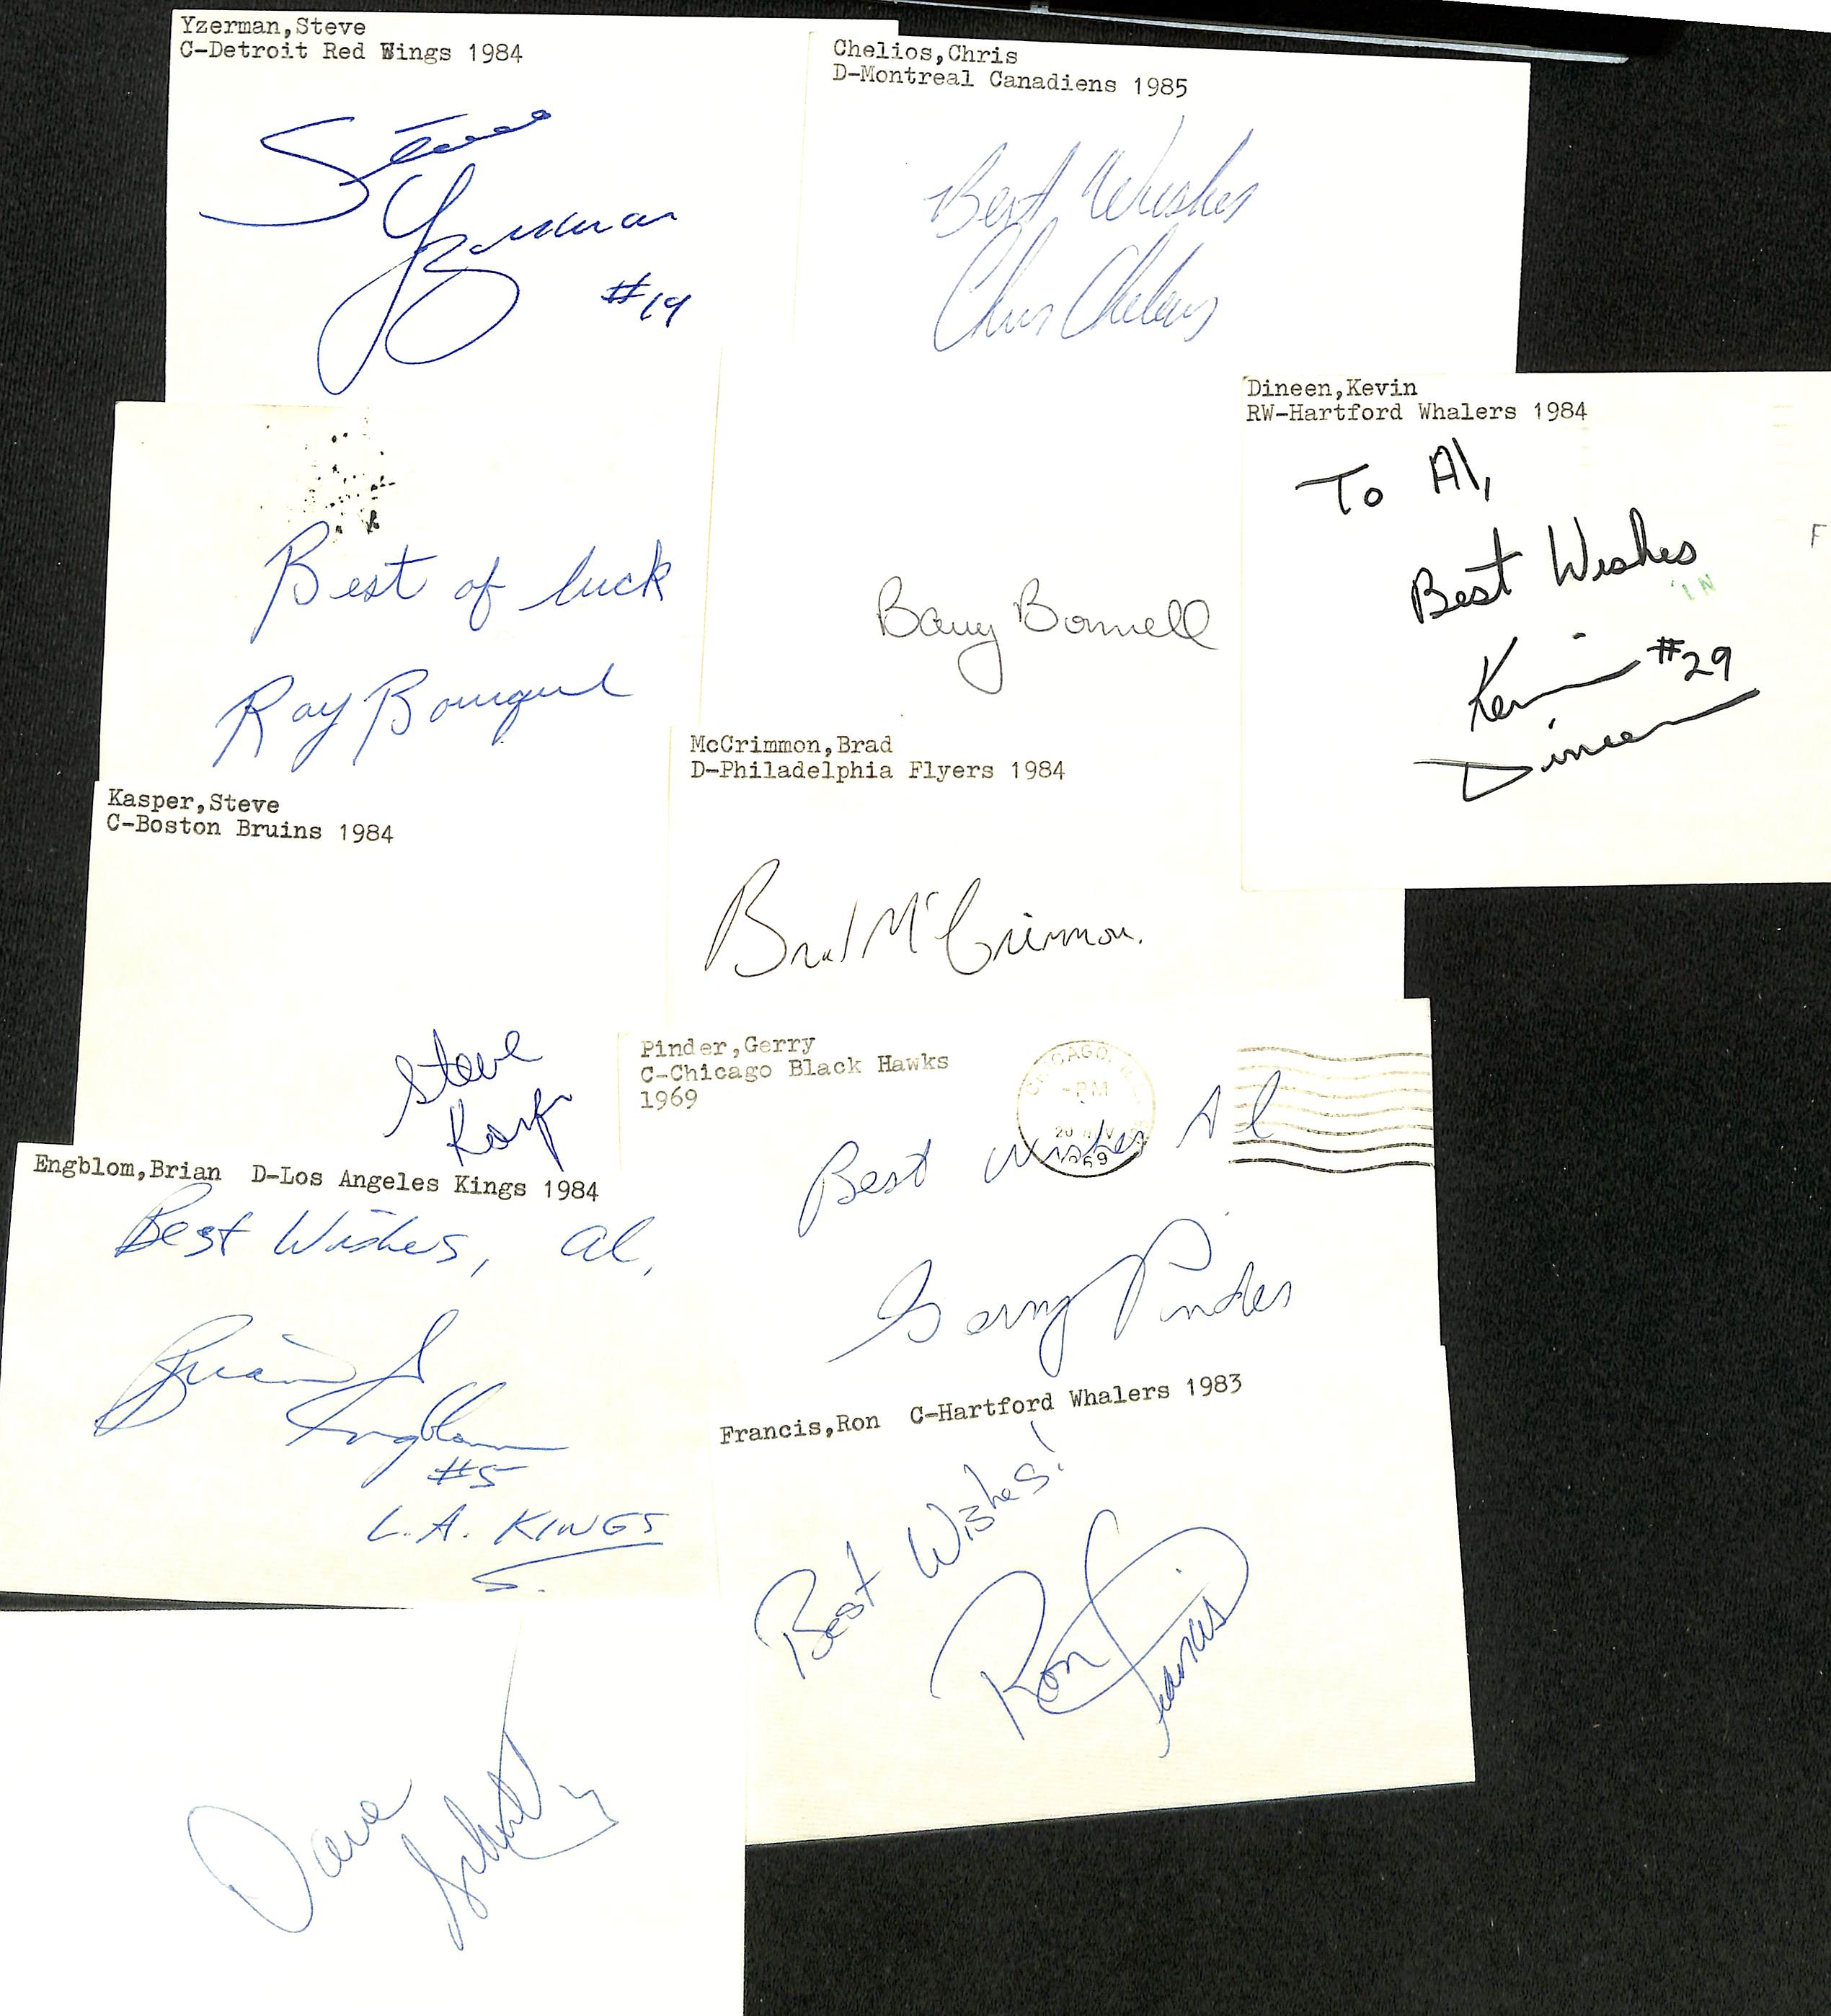 Yzerman,Steve
C-Detroit Red Wings 1984
Steve
Yzerman
#19
Chelios,Chris
D-Montreal Canadiens 1985
Best Wishes
Chris Chelios
Dineen,Kevin
RW-Hartford Whalers 1984
To Al,
Best Wishes
IN
F
Kevin #29
Dineen
Best of luck
Ray Bourque
Barry Bonnell
McCrimmon,Brad
D-Philadelphia Flyers 1984
Brad McCrimmon.
Kasper,Steve
C-Boston Bruins 1984
Steve
Kasper
Pinder,Gerry
C-Chicago Black Hawks
1969
CHICAGO,
PM
20 NOV
1969
Best wishes Al
Gerry Pinder
Engblom,Brian D-Los Angeles Kings 1984
Best Wishes, Al,
Brian
Engblom
#5
L.A. KINGS
Francis,Ron C-Hartford Whalers 1983
Best Wishes!
Ron Francis
Dave
Schultz